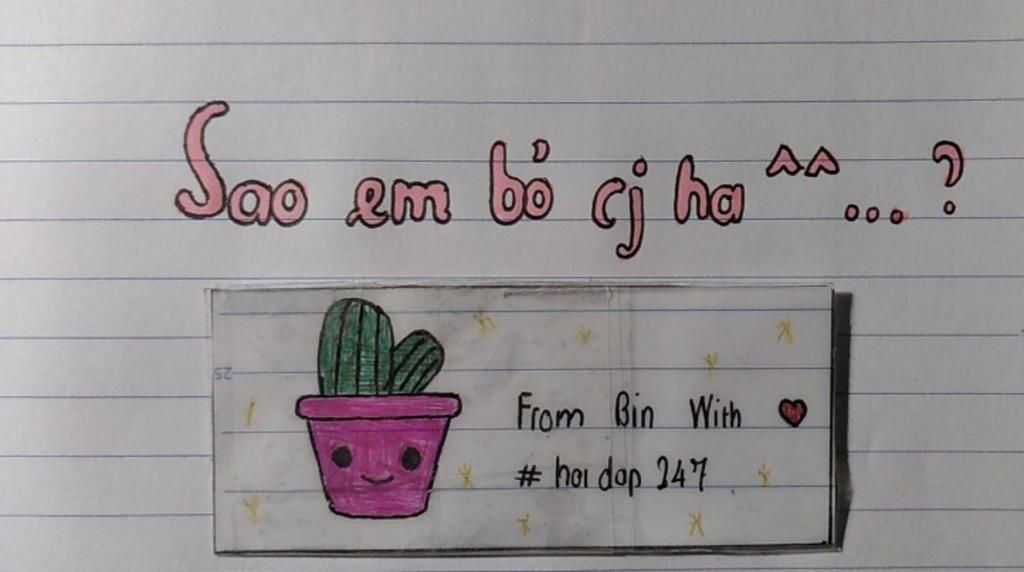 Sao em bỏ cj ha ^^...?
25
From Bin With ♥
# hoi dap 247